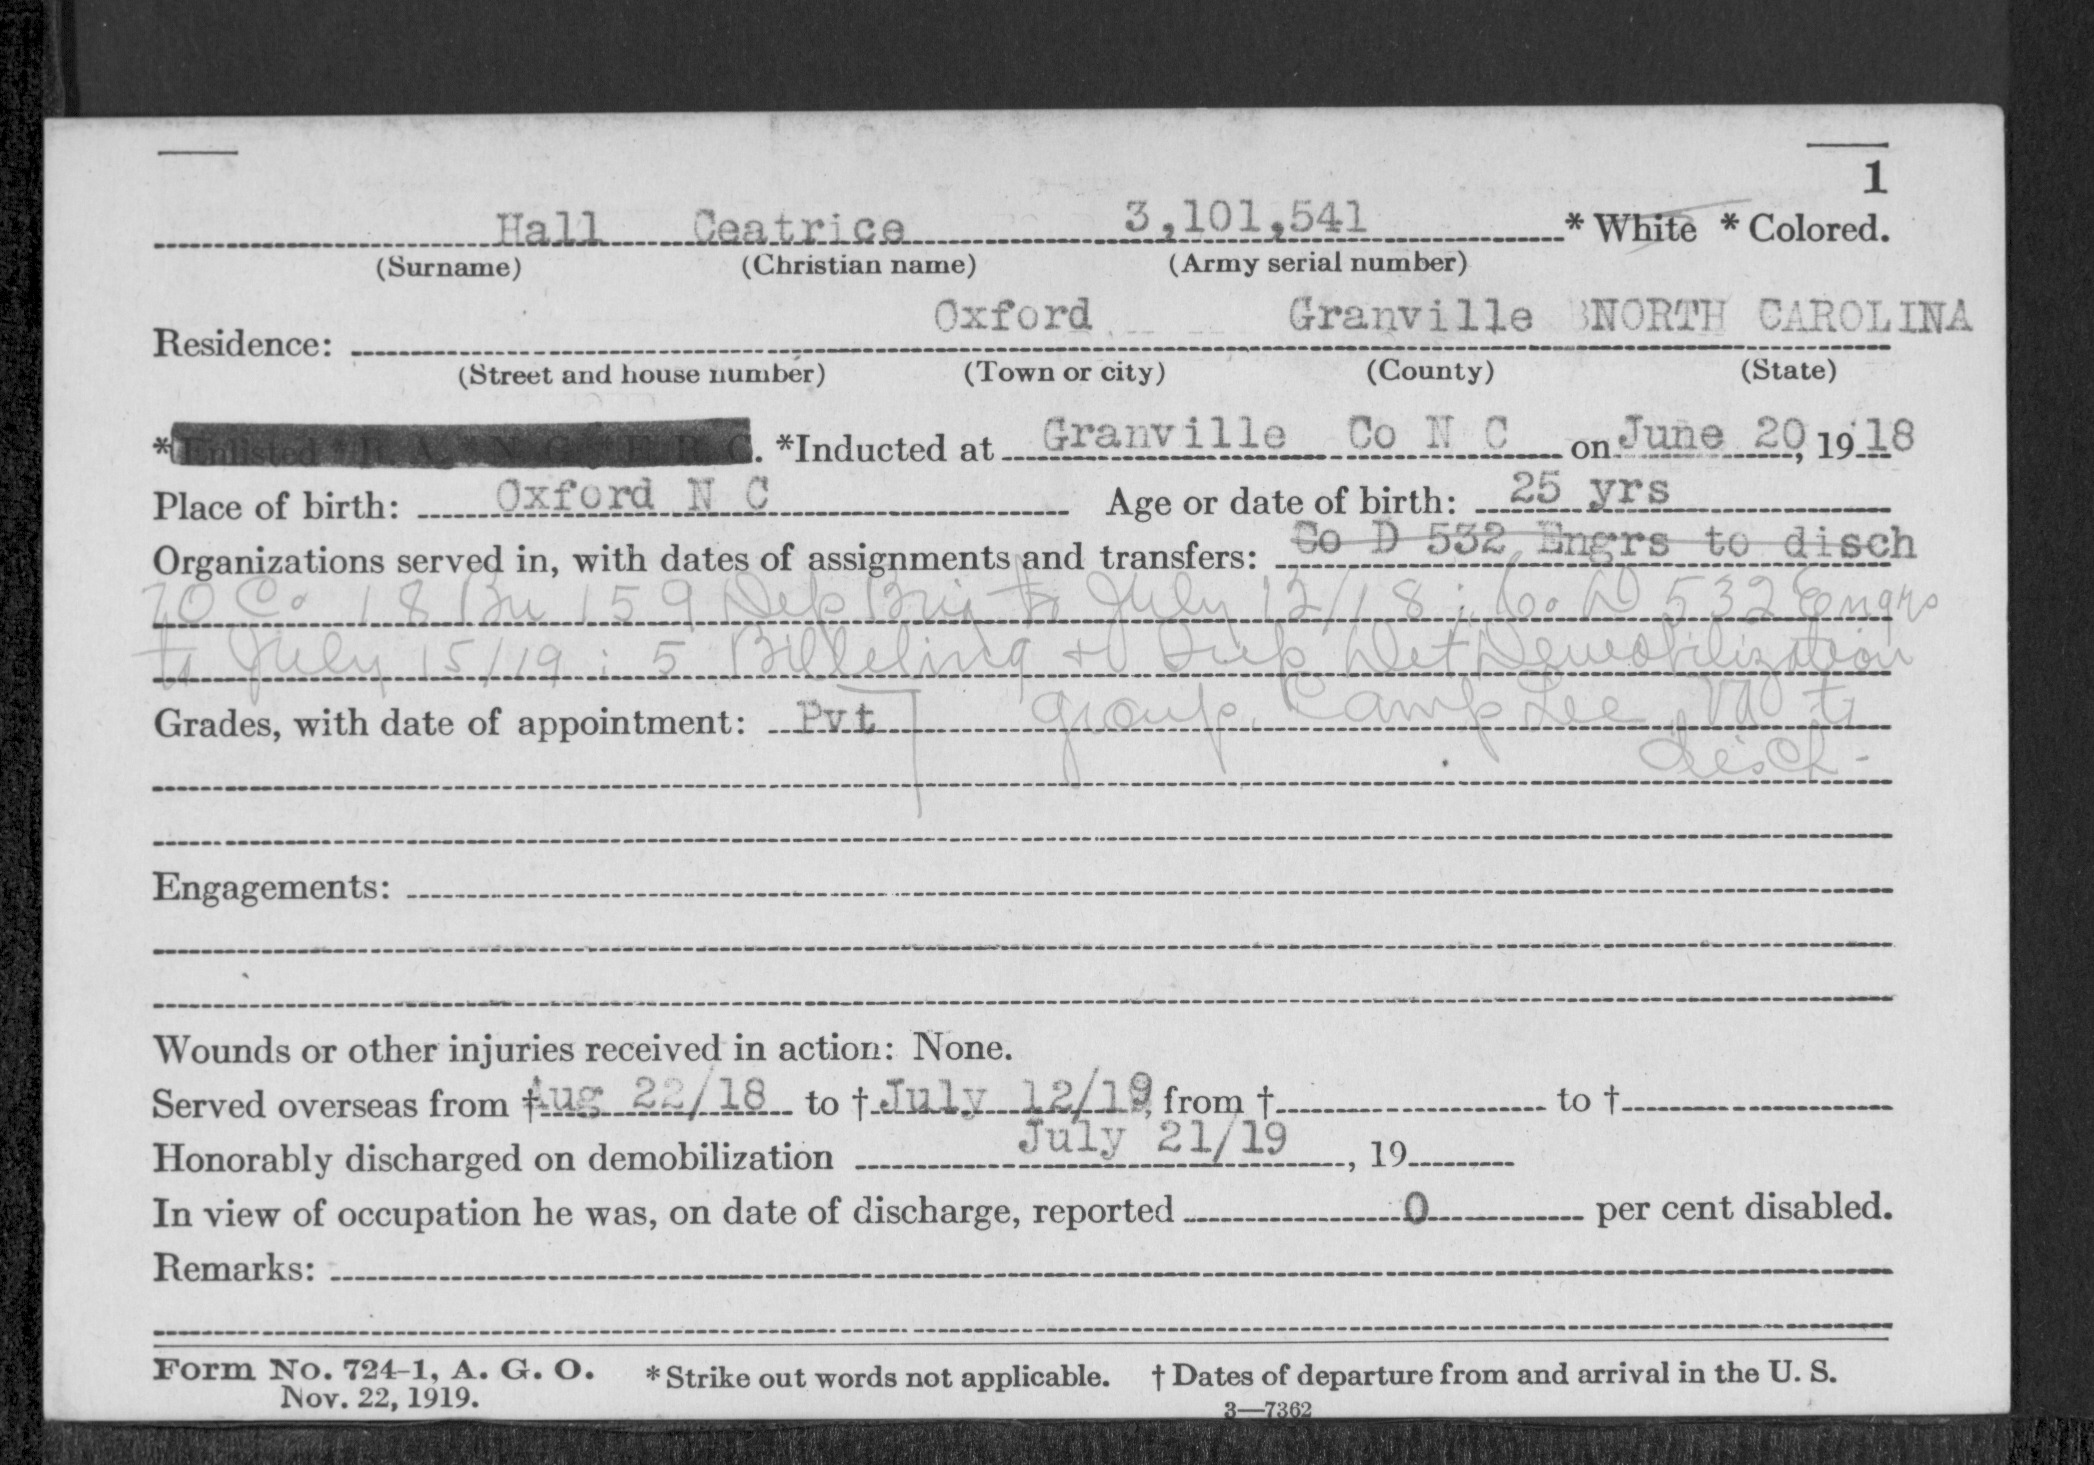 1
Hall Ceatrice 3,101,541 * White * Colored.
(Surname) (Christian name) (Army serial number)
Oxford Granville NORTH CAROLINA
Residence:
(Street and house number) (Town or city) (County) (State)
*Enlisted * R. A. * N. G. * E. R. C. *Inducted at Granville Co N C on June 20, 1918
Place of birth: Oxford N C Age or date of birth: 25 yrs
Organizations served in, with dates of assignments and transfers: Co D 532 Engrs to disch
70 Co 18 Bn 159 Dep Brig to July 12/18; Co D 532 Engrs
to July 15/19; 5 Billeting & Sup Det Demobilization
Grades, with date of appointment: Pvt group, Camp Lee Va to
disch-
Engagements:
Wounds or other injuries received in action: None.
Served overseas from †Aug 22/18 to †July 12/19, from † to †
Honorably discharged on demobilization July 21/19, 19
In view of occupation he was, on date of discharge, reported 0 per cent disabled.
Remarks:
Form No. 724-1, A. G. O. *Strike out words not applicable. †Dates of departure from and arrival in the U. S.
Nov. 22, 1919. 3—7362